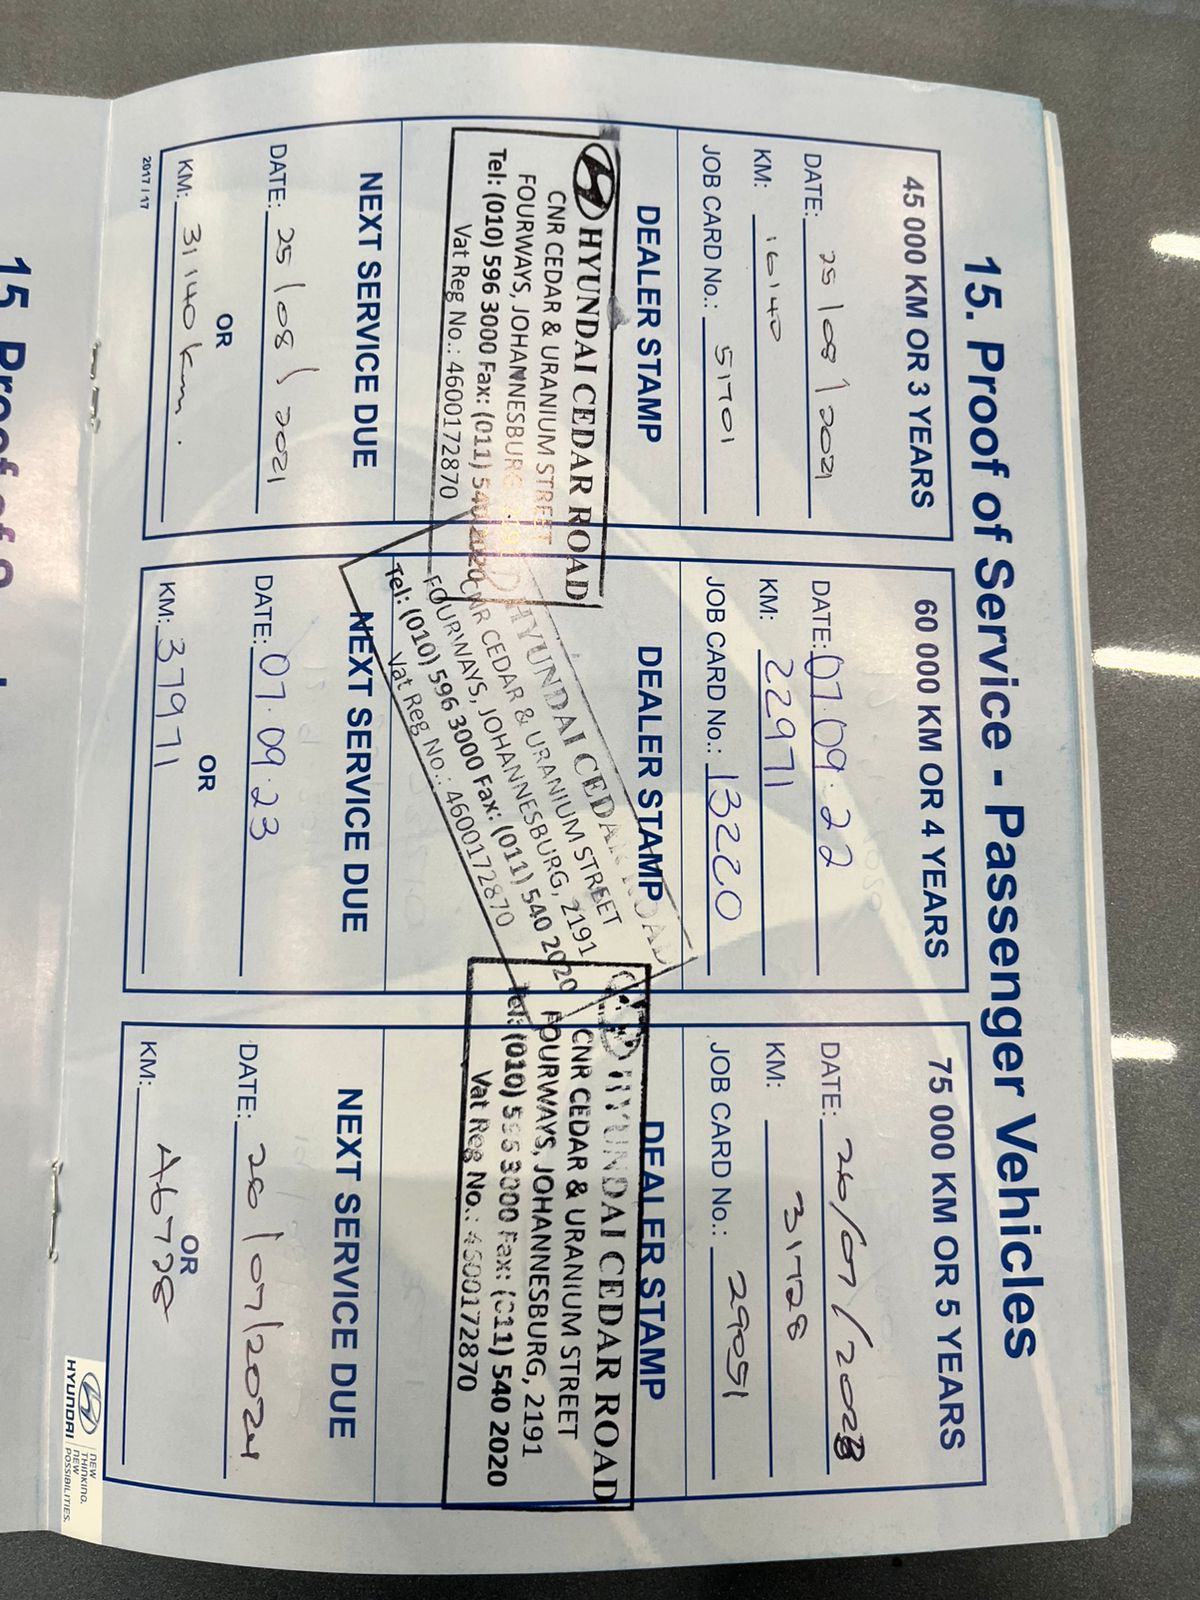 15. Proof of Service - Passenger Vehicles
45 000 KM OR 3 YEARS
DATE: 25/08/2021
KM: 16140
JOB CARD No.: 51701
DEALER STAMP
HYUNDAI CEDAR ROAD
CNR CEDAR & URANIUM STREET
FOURWAYS, JOHANNESBURG, 2191
Tel: (010) 596 3000 Fax: (011) 540 2020
Vat Reg No.: 4600172870
NEXT SERVICE DUE
DATE: 25/08/2021
OR
KM: 31140 km.
2017 / 17
60 000 KM OR 4 YEARS
DATE: 07.09.22
KM: 22971
JOB CARD No.: 13220
DEALER STAMP
HYUNDAI CEDAR ROAD
CNR CEDAR & URANIUM STREET
FOURWAYS, JOHANNESBURG, 2191
Tel: (010) 596 3000 Fax: (011) 540 2020
Vat Reg No.: 4600172870
NEXT SERVICE DUE
DATE: 07.09.23
OR
KM: 37971
75 000 KM OR 5 YEARS
DATE: 20/07/2023
KM: 31728
JOB CARD No.: 29051
DEALER STAMP
HYUNDAI CEDAR ROAD
CNR CEDAR & URANIUM STREET
FOURWAYS, JOHANNESBURG, 2191
Tel: (010) 596 3000 Fax: (011) 540 2020
Vat Reg No.: 4600172870
NEXT SERVICE DUE
DATE: 20/07/2024
OR
KM: 46728
HYUNDAI
NEW
THINKING.
NEW
POSSIBILITIES.
15. Proof of